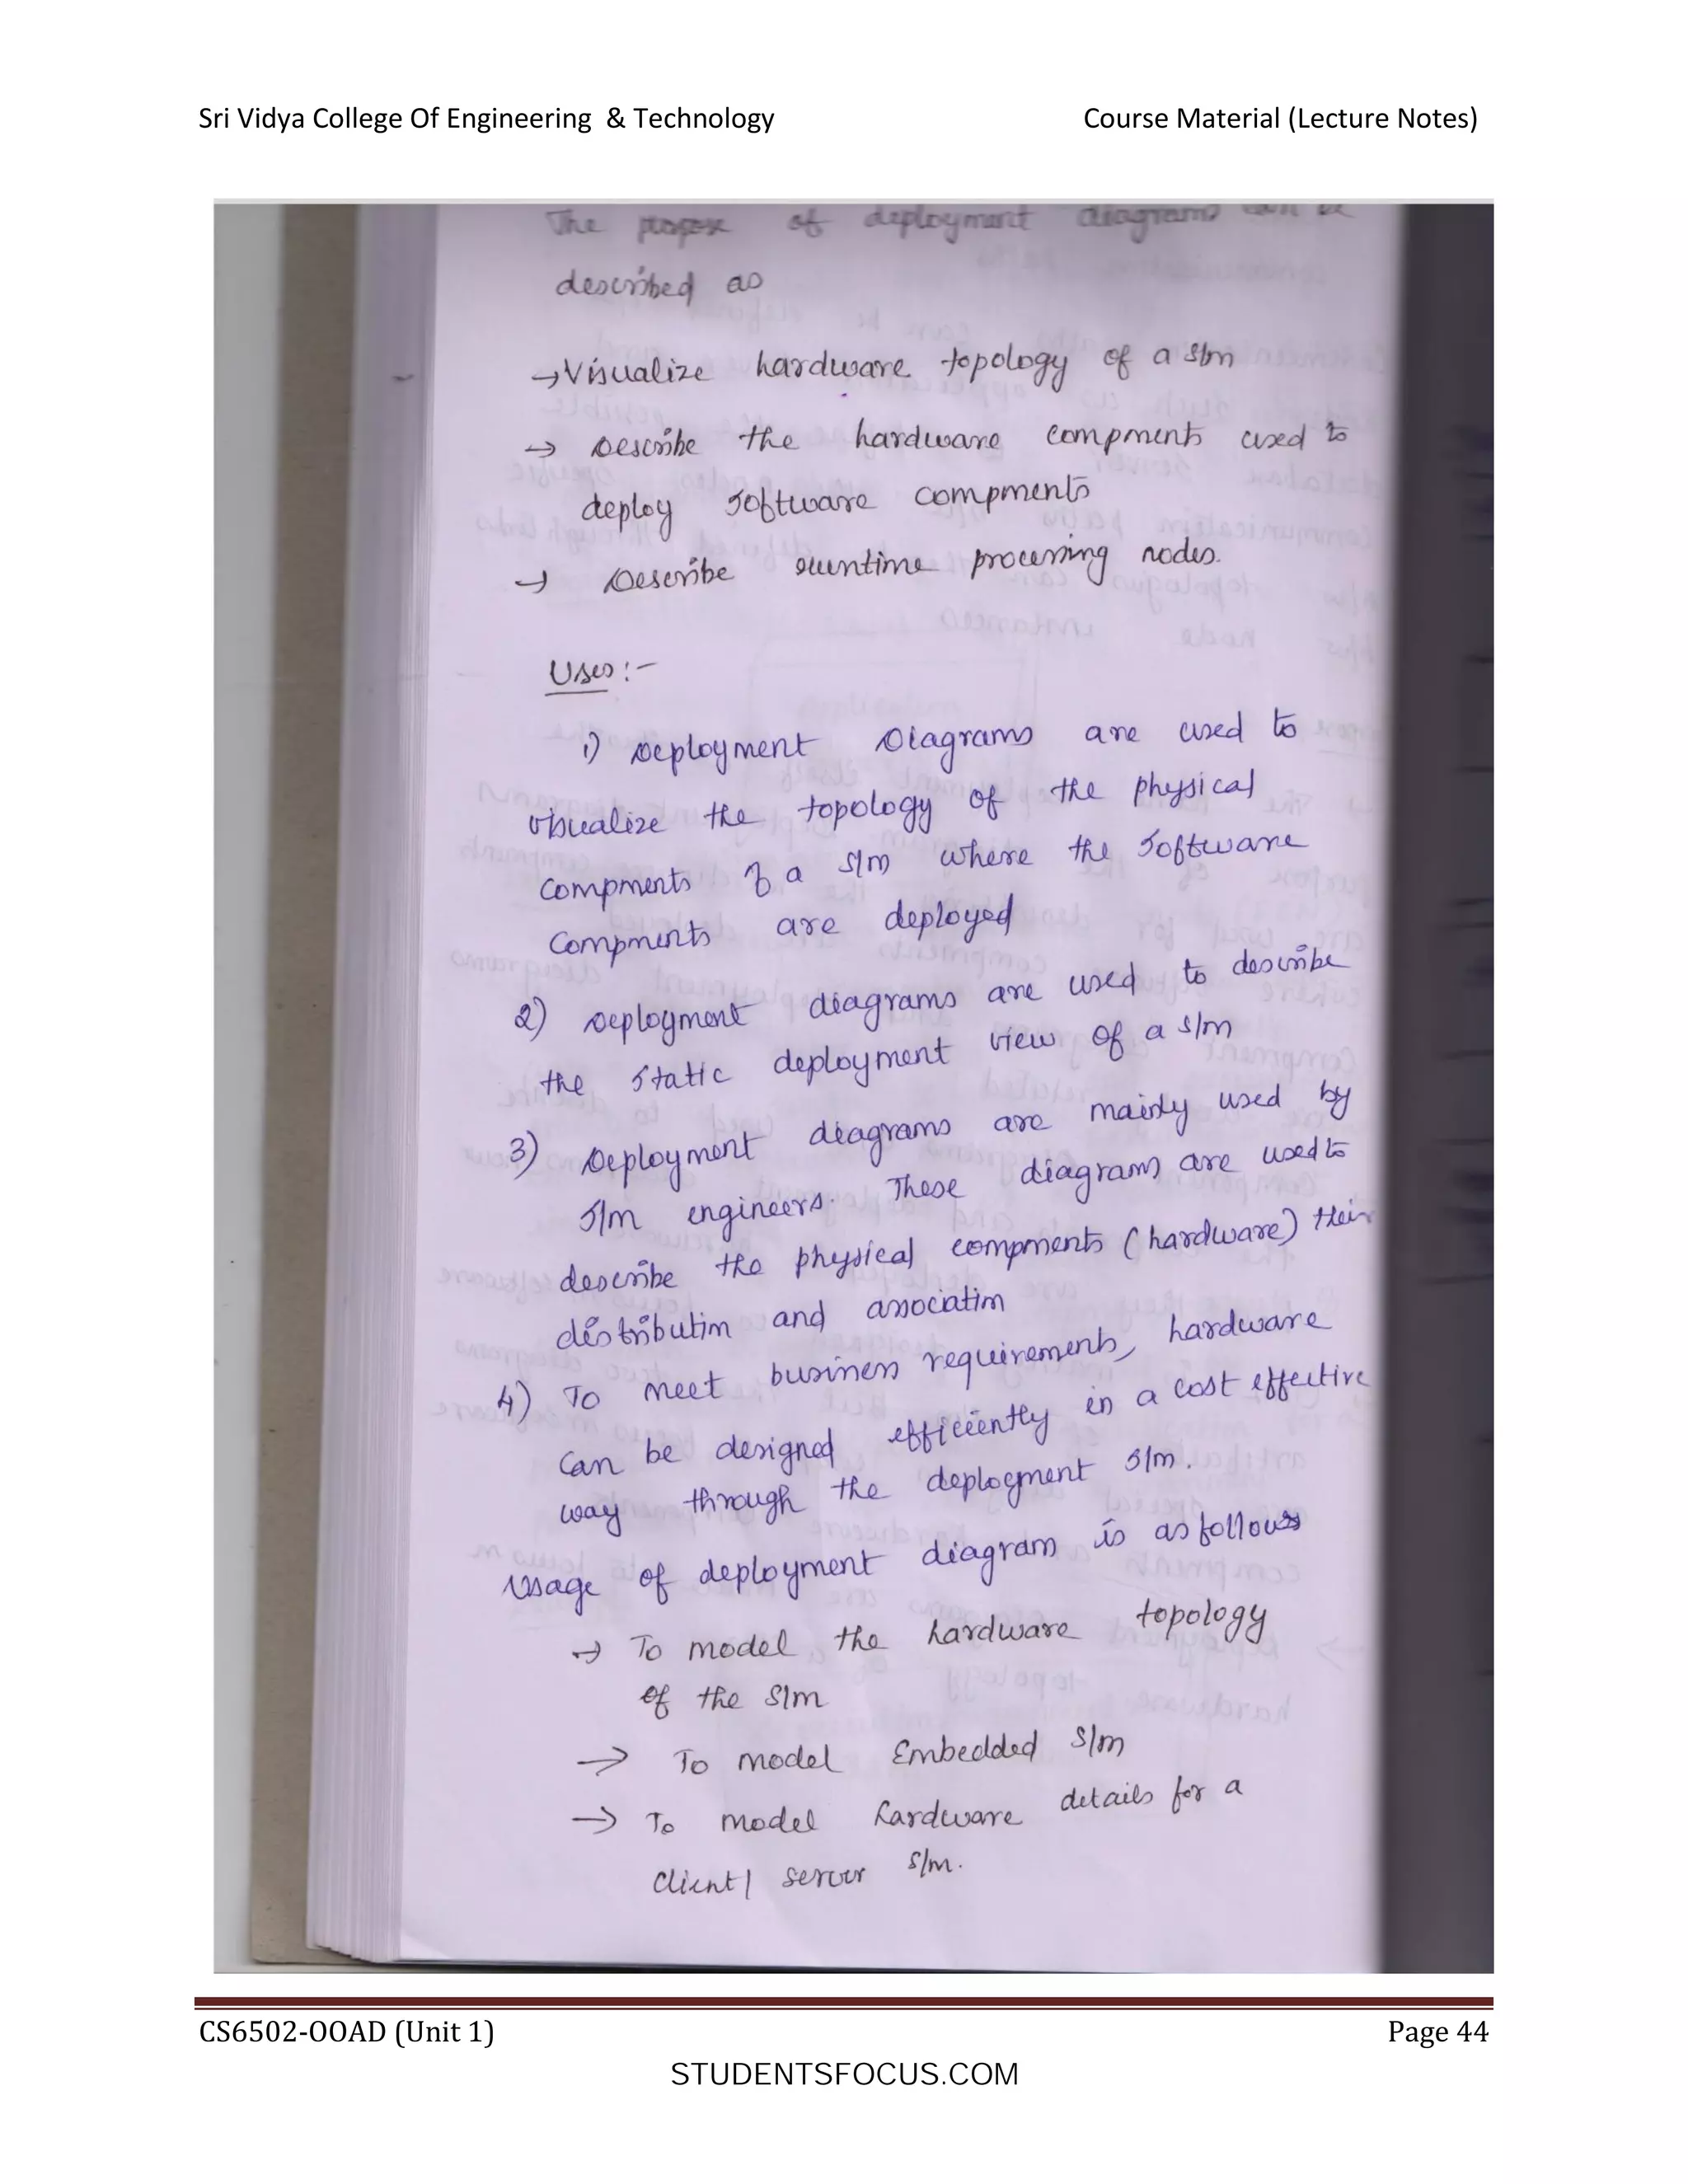 Sri Vidya College Of Engineering & Technology Course Material (Lecture Notes)
The purpose of deployment diagrams can be
described as
→ Visualize hardware topology of a s/m
→ Describe the hardware components used to
deploy software components
→ Describe runtime processing nodes.
Uses :-
1) Deployment Diagrams are used to
visualize the topology of the physical
components of a s/m where the software
components are deployed
2) Deployment diagrams are used to describe
the static deployment view of a s/m
3) Deployment diagrams are mainly used by
s/m engineers. These diagrams are used to
describe the physical components (hardware) their
distribution and association
4) To meet business requirements, hardware
can be designed efficiently in a cost effective
way through the deployment s/m.
Usage of deployment diagram is as follows
→ To model the hardware topology
of the s/m
→ To model Embedded s/m
→ To model hardware details for a
client/ server s/m.
CS6502-OOAD (Unit 1) Page 44
STUDENTSFOCUS.COM